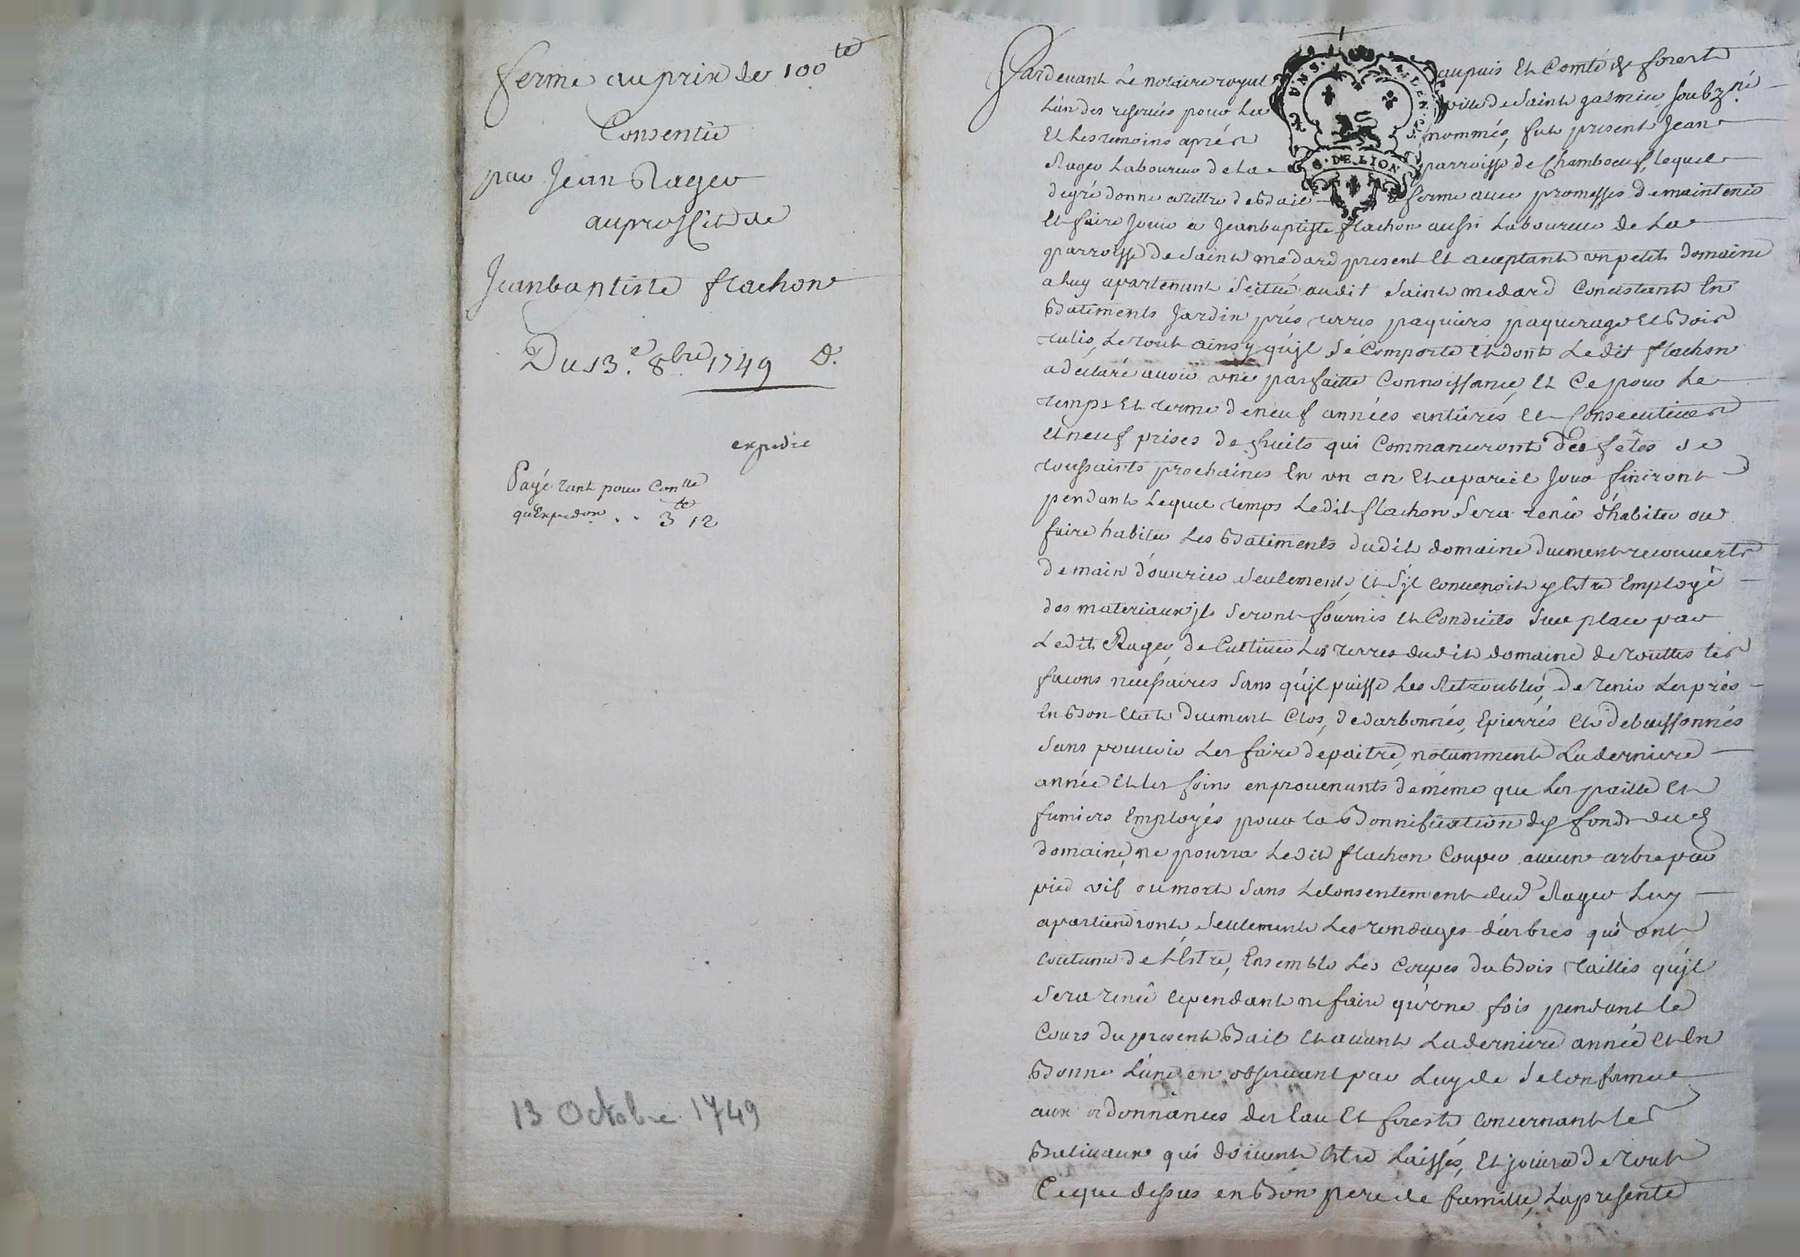 ferme au prix de 100 ᵗᵗ
Consentie
par Jean Rager
au proffit de
Jeanbaptiste flachon
Du 13.e 8.bre 1749 D.
expedie
Payé tant pour Con.lle
qu'Expedon. . . 3 ᵗᵗ 12
13 Octobre 1749
GEN. DE LION
Pardevant Le notaire royal au païs Et Comté de forest
L'un des reservés pour La ville de Saint galmier soubz.né
Et Les temoins aprés nommés, fut present Jean
Rager Laboureur de La parroisse de Chambœuf, Lequel
de gré donne a tittre de Bail a ferme avec promesses de maintenir
Et faire jouir a Jeanbaptiste flachon aussi Laboureur de La
parroisse de Saint medard present Et acceptant un petit domaine
a Luy apartenant scitué audit Saint medard Concistant En
Batiments Jardin prés terres paquiers paquerage Et Bois
talis, Le tout ainsy qu'jl se Comporte Et dont Ledit flachon
a déclaré avoir une parfaitte Connoissance, Et Ce pour Le
temps Et terme de neuf années entieres Et Consecutives
Et neuf prises de fruits qui Commanceront des fêtes de
toussaints prochaines En un an Et a pareil jour finiront
pendant Lequel temps Ledit flachon Sera tenu d'habiter ou
faire habiter Les Batiments dudit domaine duement recouverts
de main d'ouvrier seulement, Et s'jl convenoit y Estre Employé
des materiaux jls seront fournis Et Conduits sur place par
Ledit Rager, de Cultiver Les terres dudit domaine de touttes les
facons nécessaires sans qu'jl puisse Les Retroubler, de tenir Les prés
En Bon Etat duement Clos, dedarbonnés, Epierrés Et debuissonnés
sans pouvoir Les faire depaitre, notamment La derniere
année Et Les foins en provenants de même que Les paille Et
fumiers Employés pour la Bonnification des fonds dud.
domaine, ne pourra Ledit flachon Couper aucun arbre par
pied vif ou mort sans Le Consentement dud. Rager Luy
apartiendront seulement Les tondages d'arbres qui ont
coutume de L'Estre, Ensemble Les Coupes du Bois taillis qu'jl
sera tenu cependant ne faire qu'une fois pendant le
Cours du present Bail Et avant La derniere année Et En
Bonne Lune en observant par Luy de se Conformer
aux ordonnances des Eau Et forest concernant les
Balivaux qui doivent Estre Laissés, Et jouira de tout
Ce que dessus en Bon pere de famille, La presente